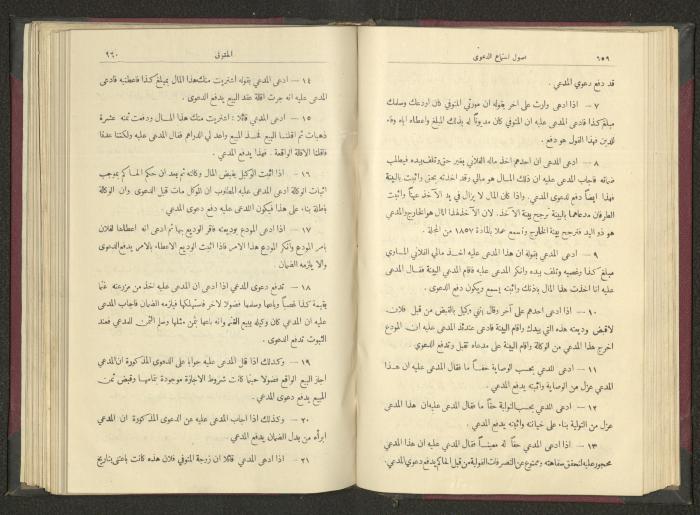 ٦٥٩
صول استماع الدعوى
قد دفع دعوي المدعي .
٧ — اذا ادعى وارث على اخر بقوله ان مورثي المتوفي كان اودعك وسلمك
مبلغ كذا فادعى المدعى عليه ان المتوفي كان مديوناً له بذلك المبلغ واعطاه اياه وفاء
للدين فهذا القول هو دفع .
٨ — ادعى المدعي ان احدهم اخذ ماله الفلاني بغير حق وتلف بيده فيطلب
ضمانه فاجاب المدعى عليه ان ذلك المال هو مالي وقد اخذته بحق واثبت بالبينة
فهذا ايضاً دفع دعوى المدعي. واذا كان المال لا يزال في يد الآخذ عيناً واثبت
الطرفان مدعاهما بالبينة ترجح بينة الآخذ. لان الآخذ لهذا المال هو الخارج والمدعي
هو ذو اليد فترجح بينة الخارج وتسمع عملا بالمادة ١٨٥٧ من المجلة .
٩ — ادعى المدعي بقوله ان هذا المدعى عليه اخذ مالي الفلاني المساوي
مبلغ كذا وغصبه وتلف بيده وانكر المدعى عليه فاقام المدعي البينة فقال المدعى
عليه انا اخذت هذا المال باذنك واثبته يسمع ويكون دفع الدعوى .
١٠ — اذا ادعى احدهم على آخر وقال انني وكيل بالقبض من قبل فلان
لاقبض وديعته هذه التي بيدك واقام البينة فادعى عندئذ المدعى عليه ان المودع
اخرج هذا المدعي من الوكالة واقام البينة على مدعاه تقبل وتدفع الدعوى
١١ — ادعى المدعي بحسب الوصاية حقاً ما فقال المدعى عليه ان هذا
المدعي عزل من الوصاية واثبته يدفع المدعي .
١٢ — ادعى المدعي بحسب التولية حقاً ما فقال المدعى عليه ان هذا المدعي
عزل من التولية بناء على خيانته واثبته يدفع المدعي .
١٣ — اذا ادعى المدعي حقاً له معيناً فقال المدعى عليه ان هذا المدعي
محجور عليه لتحقق سفاهته وممنوع عن التصرفات القولية من قبل الحاكم يدفع دعوي المدعي.
المتوفي
٦٦٠
١٤ — ادعى المدعي بقوله اشتريت منك هذا المال بمبلغ كذا فاعطنيه فادعى
المدعى عليه انه جرت اقالة عقد البيع يدفع الدعوى .
١٥ — ادعى المدعي قائلا: اشتريت منك هذا المال ودفعت ثمنه عشرة
ذهبات ثم اقلنا البيع فخذ المبيع واعد لي الدراهم فقال المدعى عليه ولكننا عدنا
فاقلنا الاقالة الواقعة . فهذا يدفع المدعي .
١٦ — اذا اثبت الوكيل بقبض المال وكالته ثم بعد ان حكم الحاكم بموجب
اثبات الوكالة ادعى المدعى عليه المطلوب ان الموكل مات قبل الدعوى وان الوكالة
باطلة بناء على هذا فيكون المدعى عليه دفع دعوى المدعي .
١٧ — اذا ادعى المودع بوديعته فاقر الوديع بها ثم ادعى انه اعطاها لفلان
بامر المودع وانكر المودع هذا الامر فاذا اثبت الوديع الاعطاء بالامر يدفع الدعوى
والا يلزمه الضمان
١٨ — تدفع دعوى المدعي اذا ادعى ان المدعى عليه اخذ من مزرعته غنماً
بقيمة كذا غصباً وباعها وسلمها فضولا لآخر فاستهلكها فيلزمه الضمان فاجاب المدعى
عليه ان المدعي كان وكيله ببيع الغنم وانه باعها بثمن مثلها وسلم الثمن للمدعي فعند
الثبوت تدفع الدعوى .
١٩ — وكذلك اذا قال المدعى عليه جوابا على الدعوى المذكورة ان المدعي
اجاز البيع الواقع فضولا حينما كانت شروط الاجازة موجودة بتمامها وقبض ثمن
المبيع يدفع دعوى المدعي .
٢٠ — وكذلك اذا اجاب المدعى عليه عن الدعوى المذكورة ان المدعي
ابرأه من بدل الضمان يدفع المدعي .
٢١ — اذا ادعى المدعي قائلا ان زوجة المتوفي فلان هذه كانت باعتني بتاريخ